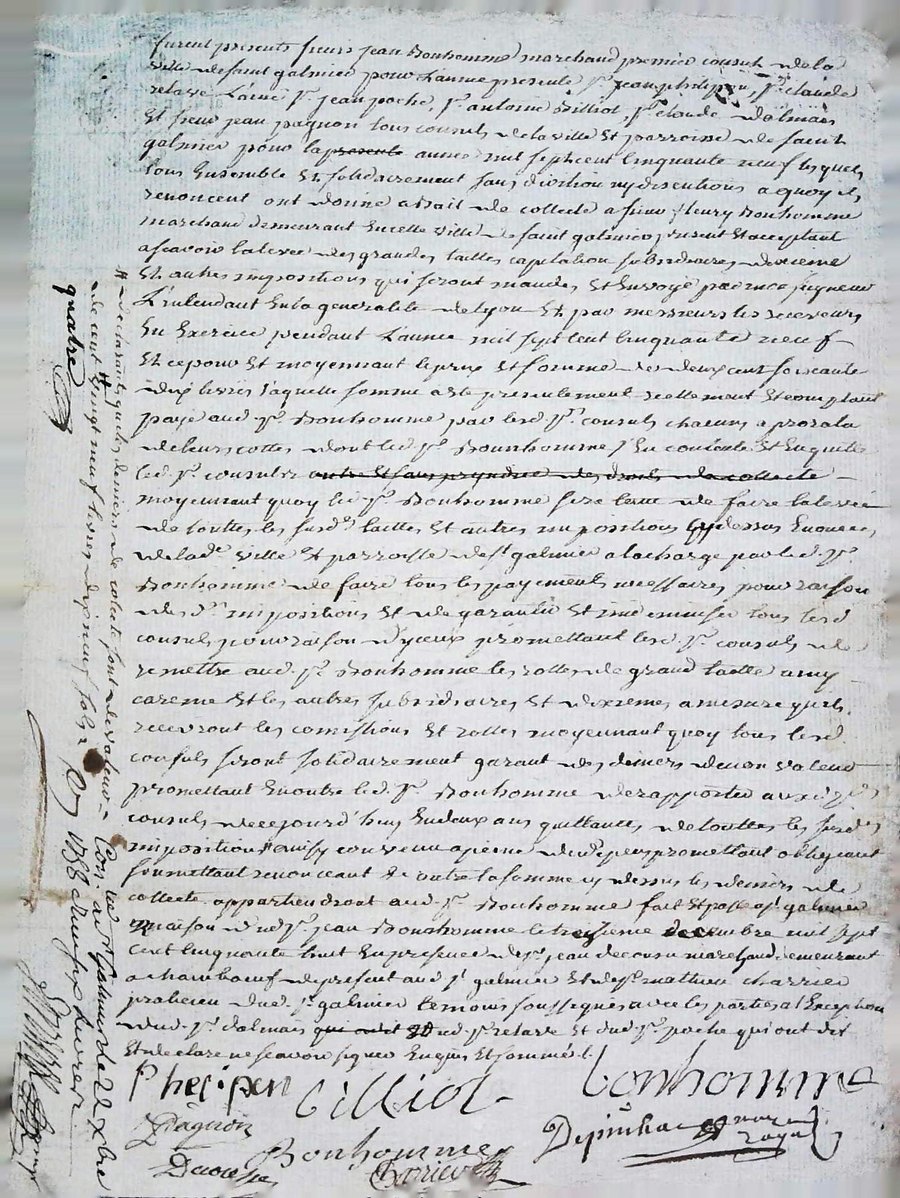 furent presents sieurs jean Bonhomme marchand premier consul de la
ville de saint galmier pour Lannee presente, Sr. jean philipon, Sr. claude
relave Laine Sr. jean poche, Sr. antoine Gilliot, Sr. claude dalmais
Et sieur jean pagnon tous consuls de la ville Et parroisse de saint
galmier pour la presente annee mil sept cent cinquante neuf lesquels
tous Ensemble Et solidairement sans division ny discution a quoy ils
renoncent ont donne a bail de collecte a sieur fleury Bonhomme
marchand demeurant En cette ville de saint galmier present Et acceptant
a scavoir la levee des grandes tailles capitation subsidiaires dixieme
Et autres impositions qui seront mandes Et Envoye par monseigneur
L'intendant En la generalite de Lyon Et par messieurs les receveurs
En Exercice pendant L'annee mil sept cent cinquante neuf
Et ce pour Et moyennant le prix Et somme de deux cent soixante
dix livres laquelle somme a ete presentement reellement Et comptant
paye aud. Sr. Bonhomme par lesd. Srs. consuls chacuns a prorata
de leurs cottes dont led. Sr. Bonhomme s'En contente Et En quitte
led. Sr. consuls outre Et sans prejudice des droits de la collecte
moyennant quoy led. Sr. Bonhomme sera tenu de faire la levee
de touttes les susd. tailles Et autres impositions cy dessus Enoncees
de lade. ville Et parroisse de St. galmier a la charge par led. Sr.
Bonhomme de faire tous les payements necessaires pour raison
desd. impositions Et de garantir Et indemniser tous lesd.
consuls pour raison d'yceux promettant lesd. Sr. consuls de
remettre aud. Sr. Bonhomme les rolles de grand taille a my
careme Et les autres subsidiaires Et dixiemes a mesure quils
recevront les comissions Et rolles moyennant quoy tous lesd.
consuls seront solidairement garant des deniers de non valeur
promettant En outre led. Sr. Bonhomme de rapporter auxd. Srs.
consuls de ce jourd'huy En deux ans quittances de touttes les susd.
impositions ainsy convenu a peine de depens promettant obligeant
soumettant renonceant Et outre la somme cy dessus les deniers de
collecte appartiendront aud. Sr. Bonhomme fait Et passe a St. galmier
maison dud. Sr. jean Bonhomme le treizieme decembre mil sept
cent cinquante huit En presence de Sr. jean decousu marchand demeurant
a chamboeuf de present aud. St. galmier Et de Sr. mathieu charrier
praticien dud. St. galmier temoins soussignes avec les parties a l'Exception
dud. Sr. dalmais qui ont dud. Sr. relave Et dud. Sr. poche qui ont dit
Et declare ne scavoir signer Enquis Et sommé.
Phelipon Gilliot Bonhomme
Pagnon
Bonhomme
# declarants que les deniers de colecte sont de valeur
de cent vingt neuf livres dix neuf sols
quatre